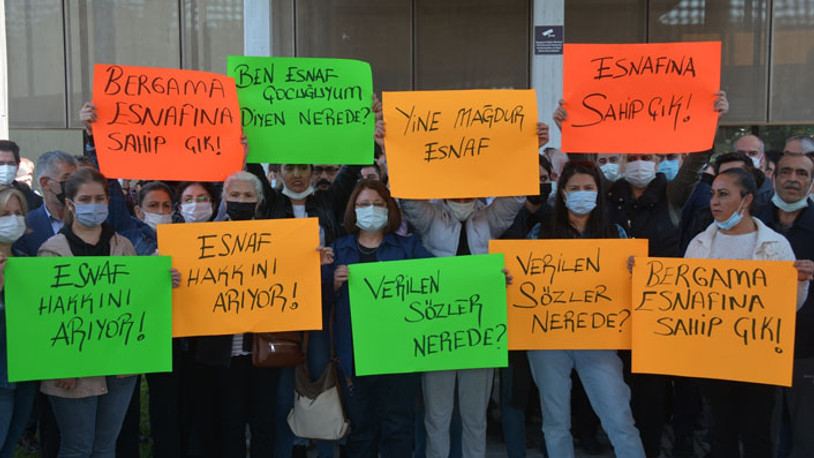 BERGAMA
ESNAFINA
SAHİP ÇIK!
BEN ESNAF
ÇOCUĞUYUM
DİYEN NEREDE?
YİNE MAĞDUR
ESNAF
ESNAFINA
SAHİP ÇIK!
ESNAF
HAKKINI
ARIYOR!
ESNAF
HAKKINI
ARIYOR!
VERİLEN
SÖZLER
NEREDE?
VERİLEN
SÖZLER
NEREDE?
BERGAMA
ESNAFINA
SAHİP ÇIK!